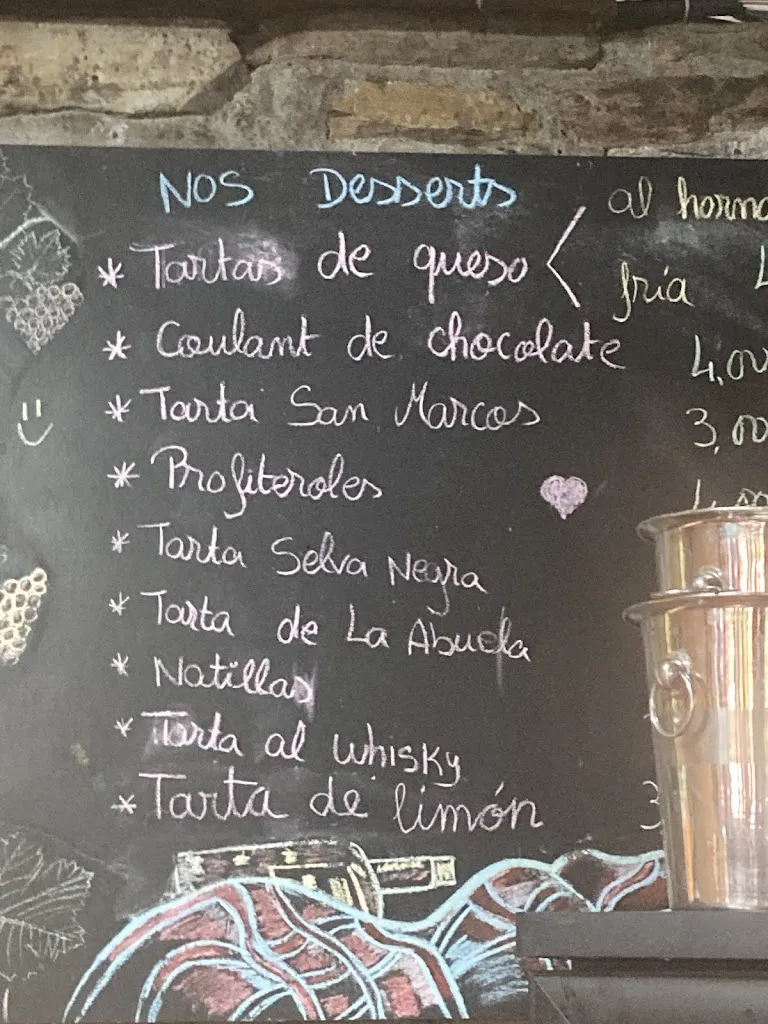 NOS Desserts
al horno
* Tartas de queso <
fría
* Coulant de chocolate 4,00
* Tarta San Marcos 3,00
* Profiteroles
* Tarta Selva Negra
* Tarta de La Abuela
* Natillas
* Tarta al whisky
* Tarta de limón 3